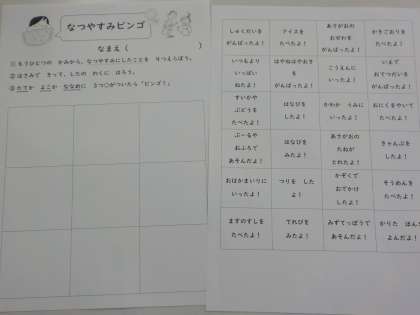 なつやすみビンゴ
なまえ（　　　　　　　）
①もうひとつの　かみから、なつやすみにしたことを　9つえらぼう。
②はさみで　きって、したの　わくに　はろう。
③たてか　よこか　ななめに　3つ○がついたら「ビンゴ！」
しゅくだいを
がんばったよ！
アイスを
たべたよ！
あさがおの
おせわを
がんばったよ！
かきごおりを
たべたよ！
いつもより
いっぱい
ねたよ！
はやねはやおき
を
がんばったよ！
こうえんに
いったよ！
いえで
おてつだいを
がんばったよ！
すいかや
ぶどうを
たべたよ！
はなびを
したよ！
かわか　うみに
いったよ！
おにくをやいて
たべたよ！
ぷーるや
おふろで
あそんだよ！
はなびを
みたよ！
あさがおの
たねが
とれたよ！
きゃんぷを
したよ！
おはかまいりに
いったよ！
つりを　した
よ！
かぞくで
おでかけ
したよ！
そうめんを
たべたよ！
まきのすしを
たべたよ！
てれびを
みたよ！
みずてっぽうで
あそんだよ！
かりた　ほん
よんだよ！